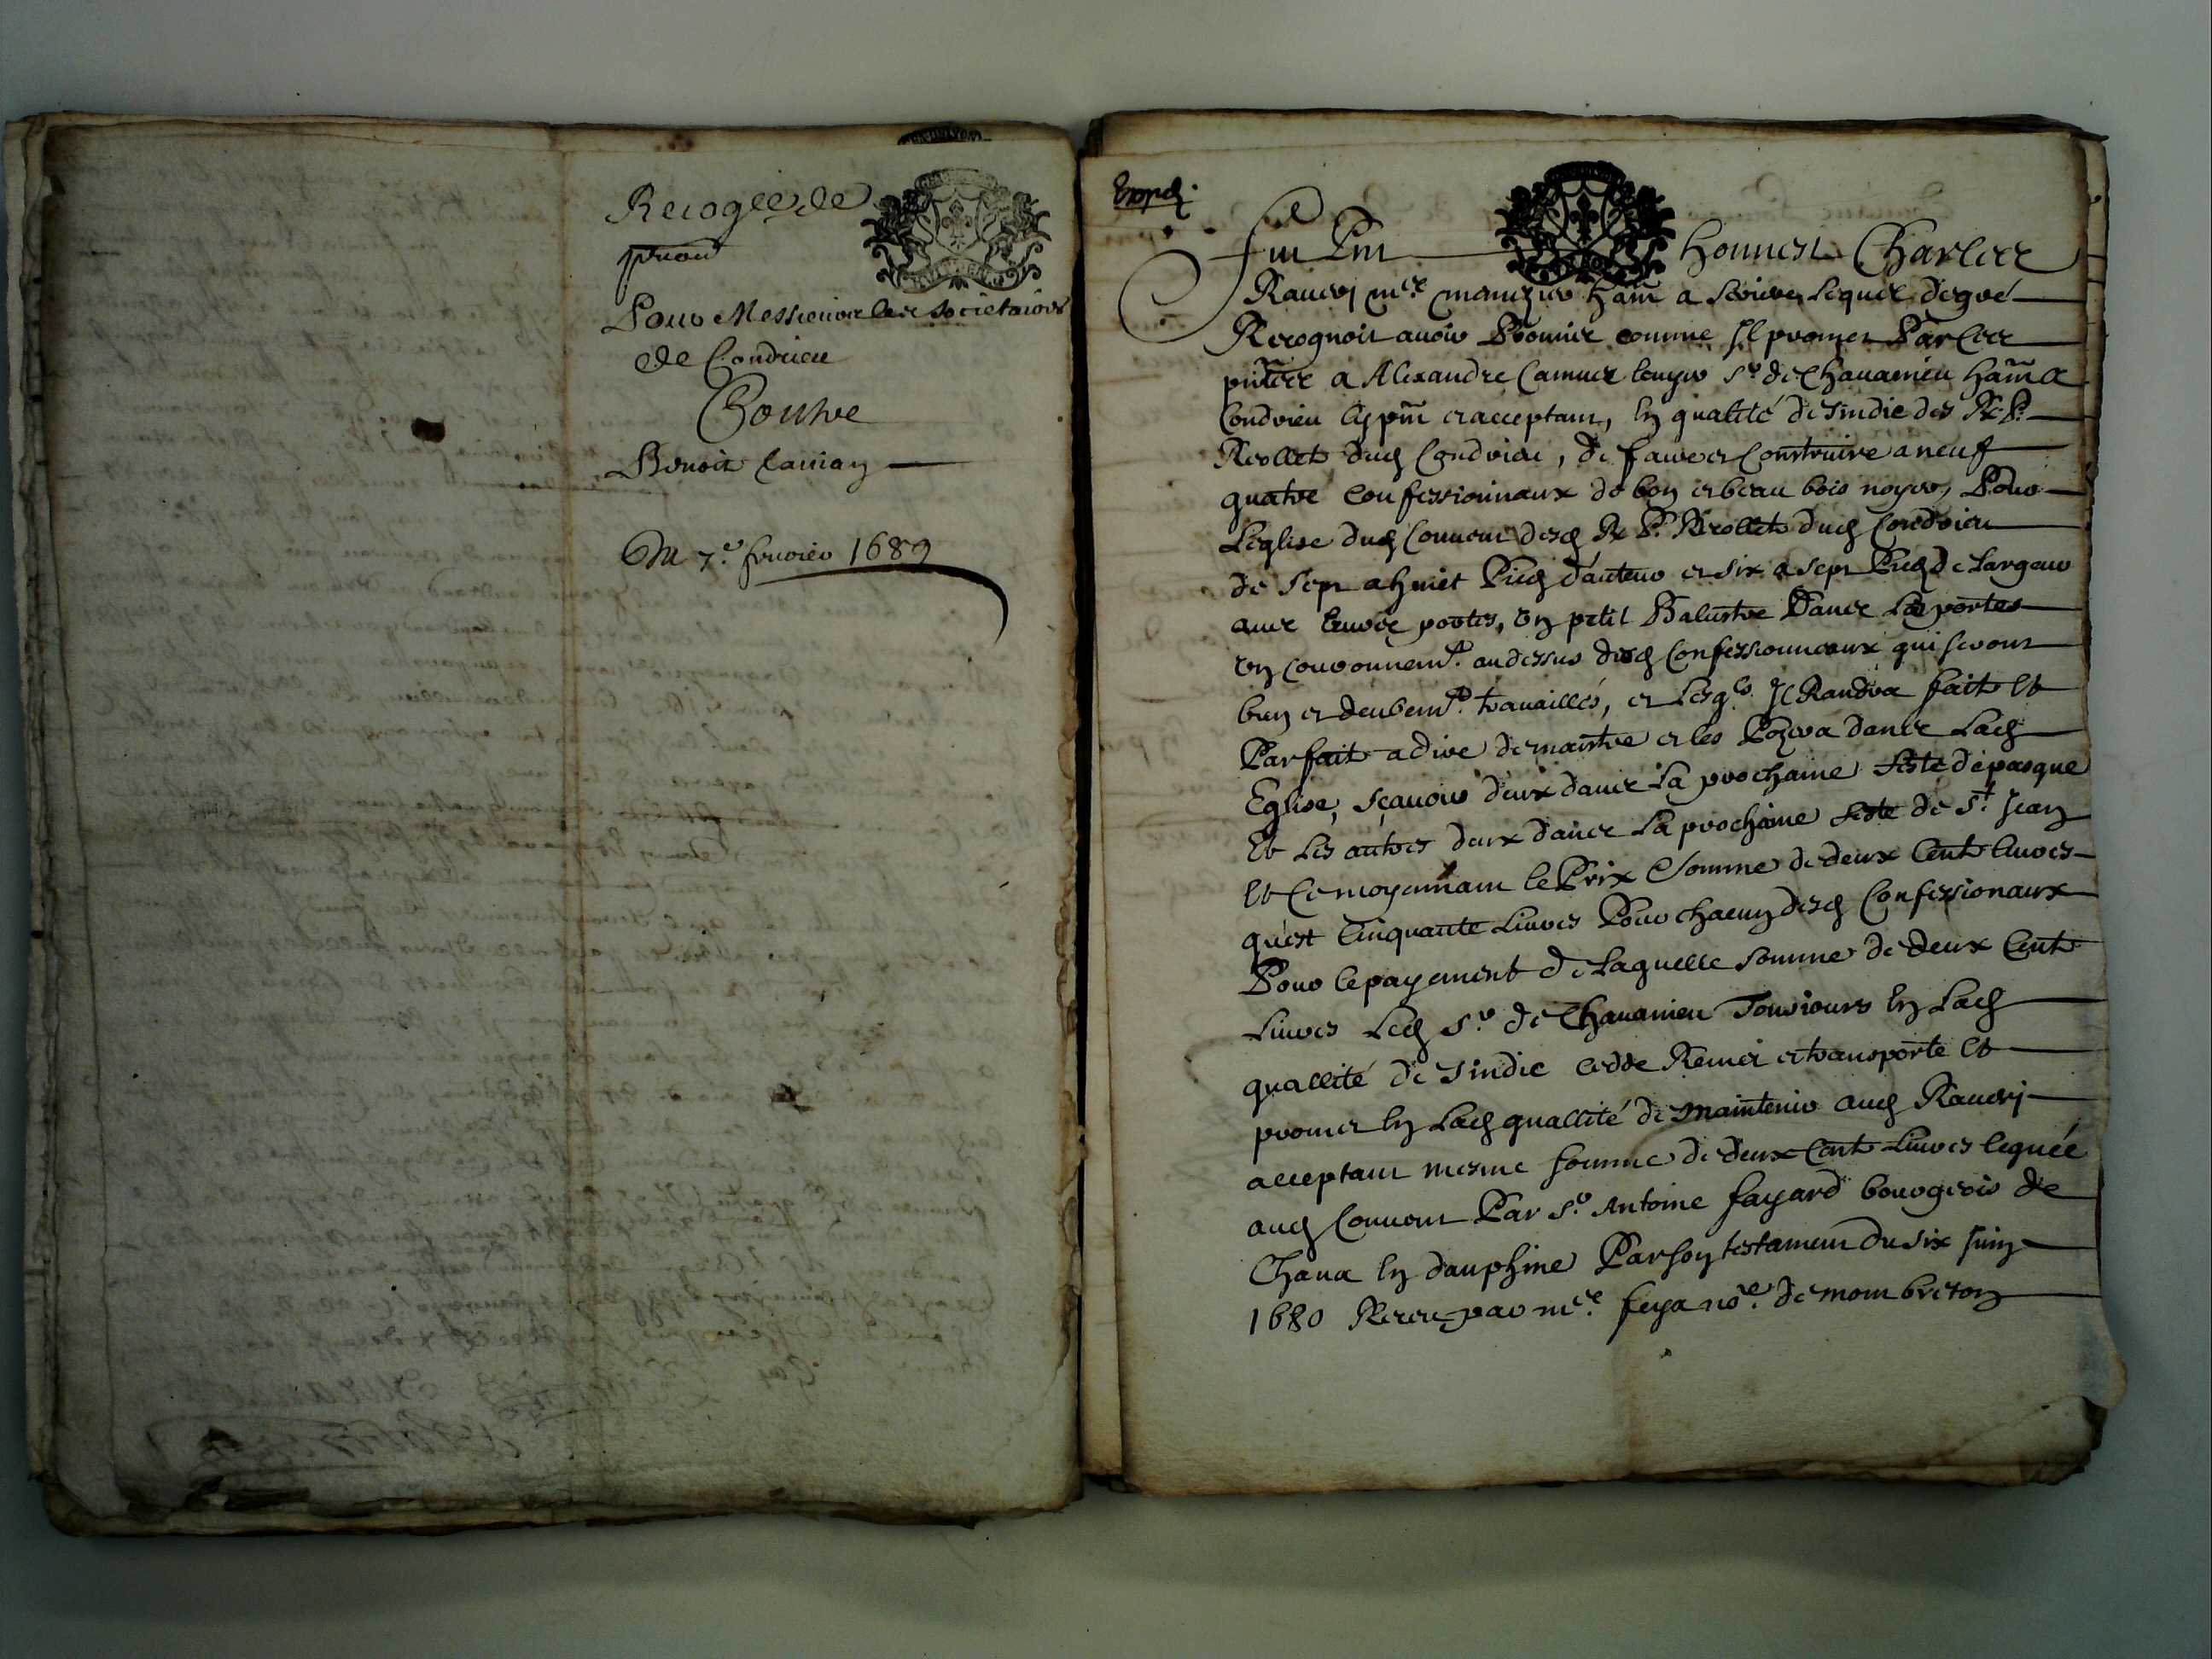 Recog.ce de
Pour Messieurs les societaires
de Condrieu
Contre
Benoit
Du 7.e feuvrier 1689
Exped.
fut pnt honneste Charles
Rauery m.e menuzier ham a Serieres lequel de gré
Recognoit auoir Promis comme Il promet Par ces
pntes a Alexandre Camus escuyer S.r de Chauanieu ham a
Condrieu cy pnt et acceptant, en qualité de sindic des R. P.
Recollets dud Condrieu, de faire et construire a neuf
quatre confessionnaux de bon et beau bois noyer, Pour
Leglise dud Conuent desd R. P. Recollets dud Condrieu
de sept a huict Pied d'auteur et six a sept Pied de Largeur
auec leurs portes, un petit Balustre Dans Les portes
un couronnem.t au dessus desd Confessionneaux qui seront
bien et deubem.t trauaillés, et Lesq.ls Il Randra fait et
Parfait a dire de maistre et les Pozera dans Lad
Eglise, sçauoir deux dans La prochaine feste de pasque
Et Les autres deux dans La prochaine feste de S.t Jean
Et Ce moyennant le Prix et somme de deux Cent Liures
qu'est Cinquante Liures Pour chacun desd Confessionaux
Pour le payement de Laquelle somme de deux Cent
Liures Led S.r de Chauanieu Tousiours en Lad
quallité de sindic cedde Remet et transporte et
promet en Lad quallité de maintenir aud Rauery
acceptant mesme somme de deux Cent Liures leguée
aud Conuent Par S.r Antoine fayard bourgeois de
Chana en dauphine Par son testament du six Juin
1680 Receu par m.e feya no.re de mombreton